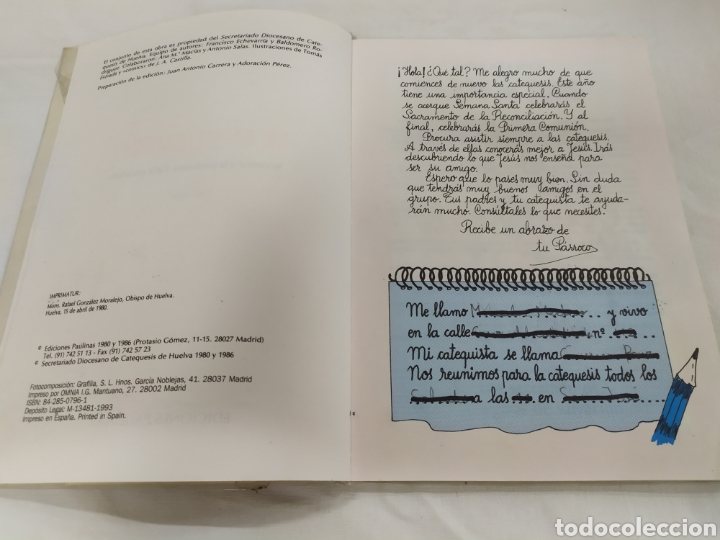 El conjunto de esta obra es propiedad del Secretariado Diocesano de Cate-
quesis de Huelva. Equipo de autores: Francisco Echevarría y Baldomero Ro-
dríguez. Colaboraron: Ana M.ª Macías y Antonio Salas. Ilustraciones de Tomás
Estrada y comics de J. A. Carrilla.
Preparación de la edición: Juan Antonio Carrera y Adoración Pérez.
IMPRIMATUR:
Mons. Rafael González Moralejo, Obispo de Huelva.
Huelva, 15 de abril de 1980.
© Ediciones Paulinas 1980 y 1986 (Protasio Gómez, 11-15. 28027 Madrid)
Tel. (91) 742 51 13 - Fax (91) 742 57 23
© Secretariado Diocesano de Catequesis de Huelva 1980 y 1986
Fotocomposición: Grafilia, S. L. Hnos. García Noblejas, 41. 28037 Madrid
Impreso por OMNIA I.G. Mantuano, 27. 28002 Madrid
ISBN: 84-285-0796-1
Depósito Legal: M-13481-1993
Impreso en España. Printed in Spain.
¡Hola! ¿Qué tal? Me alegro mucho de que
comiences de nuevo las catequesis. Este año
tiene una importancia especial. Cuando
se acerque Semana Santa celebrarás el
Sacramento de la Reconciliación. Y al
final, celebrarás la Primera Comunión.
Procura asistir siempre a las catequesis.
A través de ellas conocerás mejor a Jesús. Irás
descubriendo lo que Jesús nos enseña para
ser su amigo.
Espero que lo pases muy bien. Sin duda
que tendrás muy buenos amigos en el
grupo. Tus padres y tu catequista te ayuda-
rán mucho. Consúltales lo que necesites.
Recibe un abrazo de
tu Párroco
Me llamo y vivo
en la calle nº
Mi catequista se llama
Nos reunimos para la catequesis todos los
a las en
todocoleccion